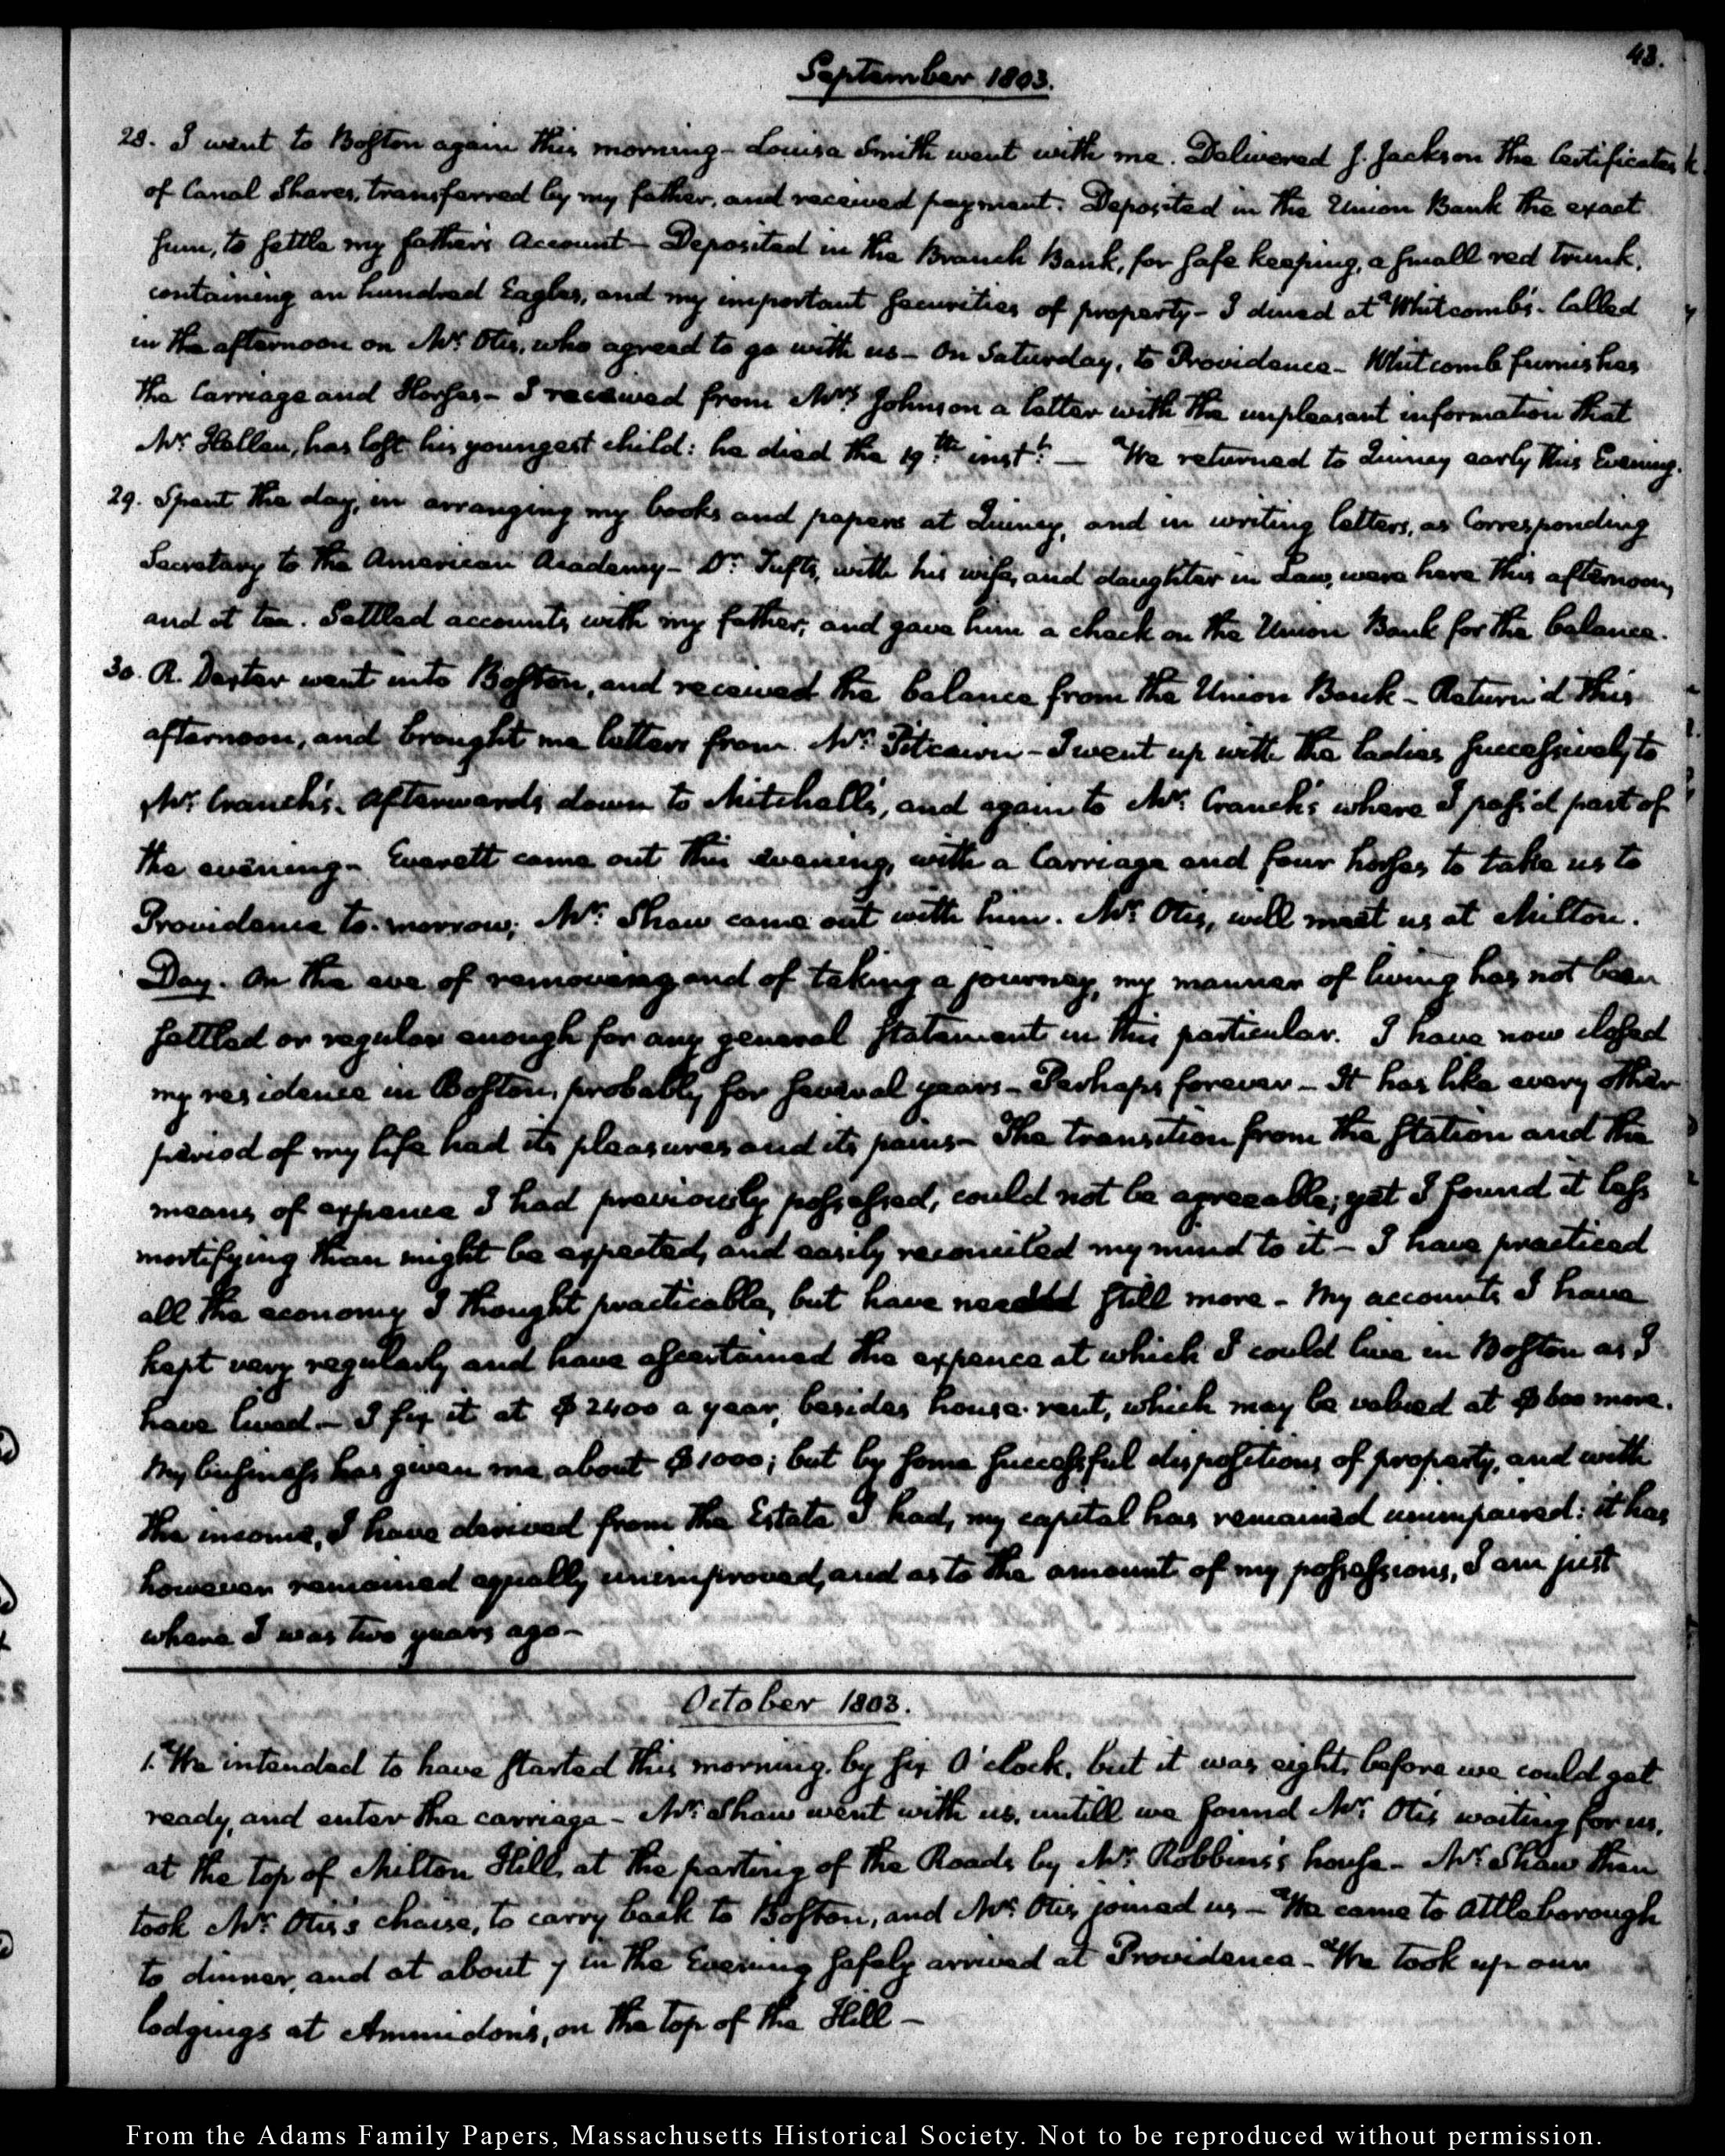 43.
September 1803.
28. I went to Boston again this morning - Louisa Smith went with me. Delivered J. Jackson the Certificates
of Canal Shares, transferred by my father, and received payment. Deposited in the Union Bank the exact
sum, to settle my father's Account - Deposited in the Branch Bank, for safe keeping, a small red trunk,
containing an hundred Eagles, and my important securities of property - I dined at Whitcomb's. Called
in the afternoon on Mr. Otis, who agreed to go with us - On Saturday, to Providence - Whitcomb furnishes
the Carriage and Horses - I received from Mrs. Johnson a letter with the unpleasant information that
Mr. Hellen, has lost his youngest child: he died the 19th. inst. — We returned to Quincy early this Evening.
29. Spent the day, in arranging my books and papers at Quincy, and in writing letters, as Corresponding
Secretary to the American Academy - Dr. Tufts, with his wife, and daughter in Law, were here this afternoon,
and at tea. Settled accounts with my father, and gave him a check on the Union Bank for the balance.
30. R. Dexter went into Boston, and received the balance from the Union Bank - Return'd this
afternoon, and brought me letters from Mr. Pitcairn - I went up with the ladies successively to
Mr. Cranch's. Afterwards down to Mitchell's, and again to Mr. Cranch's where I pass'd part of
the evening - Everett came out this evening, with a Carriage and four horses to take us to
Providence to-morrow; Mr. Shaw came out with him. Mr. Otis, will meet us at Milton.
Day. On the eve of removing and of taking a journey, my manner of living has not been
settled or regular enough for any general statement in this particular. I have now closed
my residence in Boston, probably for several years - Perhaps forever - It has like every other
period of my life had its pleasures and its pains - The transition from the station and the
means of expence I had previously possessed, could not be agreeable; yet I found it less
mortifying than might be expected, and easily reconciled my mind to it - I have practiced
all the economy I thought practicable, but have needed still more - My accounts I have
kept very regularly and have ascertained the expence at which I could live in Boston as I
have lived - I fix it at $2400 a year, besides house-rent, which may be valued at $600 more.
My business has given me about $1000; but by some successful dispositions of property, and with
the income, I have derived from the Estate I had, my capital has remained unimpaired: it has
however remained equally unimproved, and as to the amount of my possessions, I am just
where I was two years ago -
October 1803.
1. We intended to have started this morning by six O'clock, but it was eight, before we could get
ready, and enter the carriage - Mr. Shaw went with us, untill we found Mr. Otis waiting for us,
at the top of Milton Hill, at the parting of the Roads by Mr. Robbins's house - Mr. Shaw then
took Mr. Otis's chaise, to carry back to Boston, and Mr. Otis joined us - We came to Attleborough
to dinner, and at about 7 in the Evening safely arrived at Providence - We took up our
lodgings at Ammidon's, on the top of the Hill -
From the Adams Family Papers, Massachusetts Historical Society. Not to be reproduced without permission.